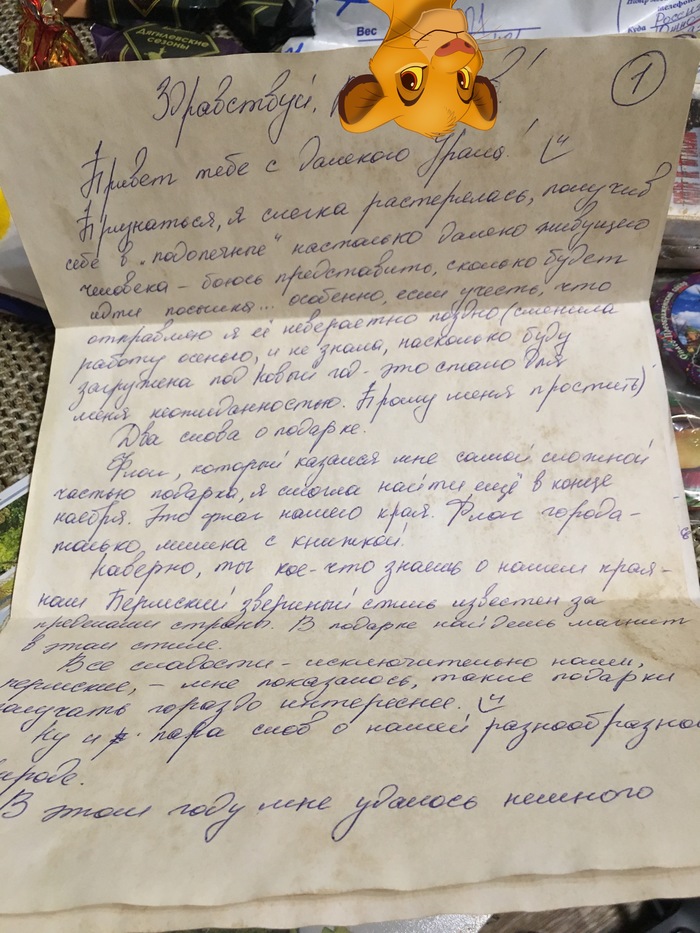 Дягилевские
сезоны
Вес
Куда
Россия
1
Здравствуй,
Привет тебе с далекого Урала!
Признаться, я слегка растерялась, получив
себе в "подопечные" настолько далеко живущего
человека - боюсь представить, сколько будет
идти посылка... особенно, если учесть, что
отправляю я её невероятно поздно (сменила
работу осенью, и не знала, насколько буду
загружена под Новый год - это стало для
меня неожиданностью. Прошу меня простить)
Два слова о подарке.
Флаг, который казался мне самой сложной
частью подарка, я смогла найти ещё в конце
ноября. Это флаг нашего края. Флаг города -
только мишка с книжкой!
Наверно, ты кое-что знаешь о нашем крае -
наш Пермский звериный стиль известен за
пределами страны. В подарке найдешь магнит
в этом стиле.
Все сладости - исключительно наши,
пермские, - мне показалось, такие подарки
получать гораздо интереснее.
Ну и пара слов о нашей разнообразной
природе.
В этом году мне удалось немного